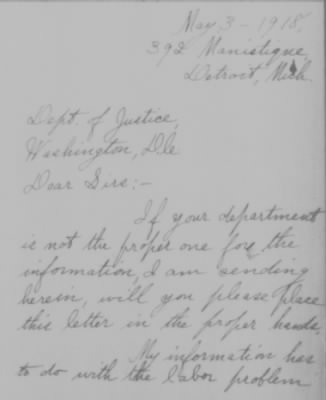 May 3 - 1918.
392 Manistique,
Detroit, Mich
Dept. of Justice,
Washington, D.C.
Dear Sirs:-
If your department
is not the proper one for the
information, I am sending
herein, will you please place
this letter in the proper hands.
My information has
to do with the labor problem